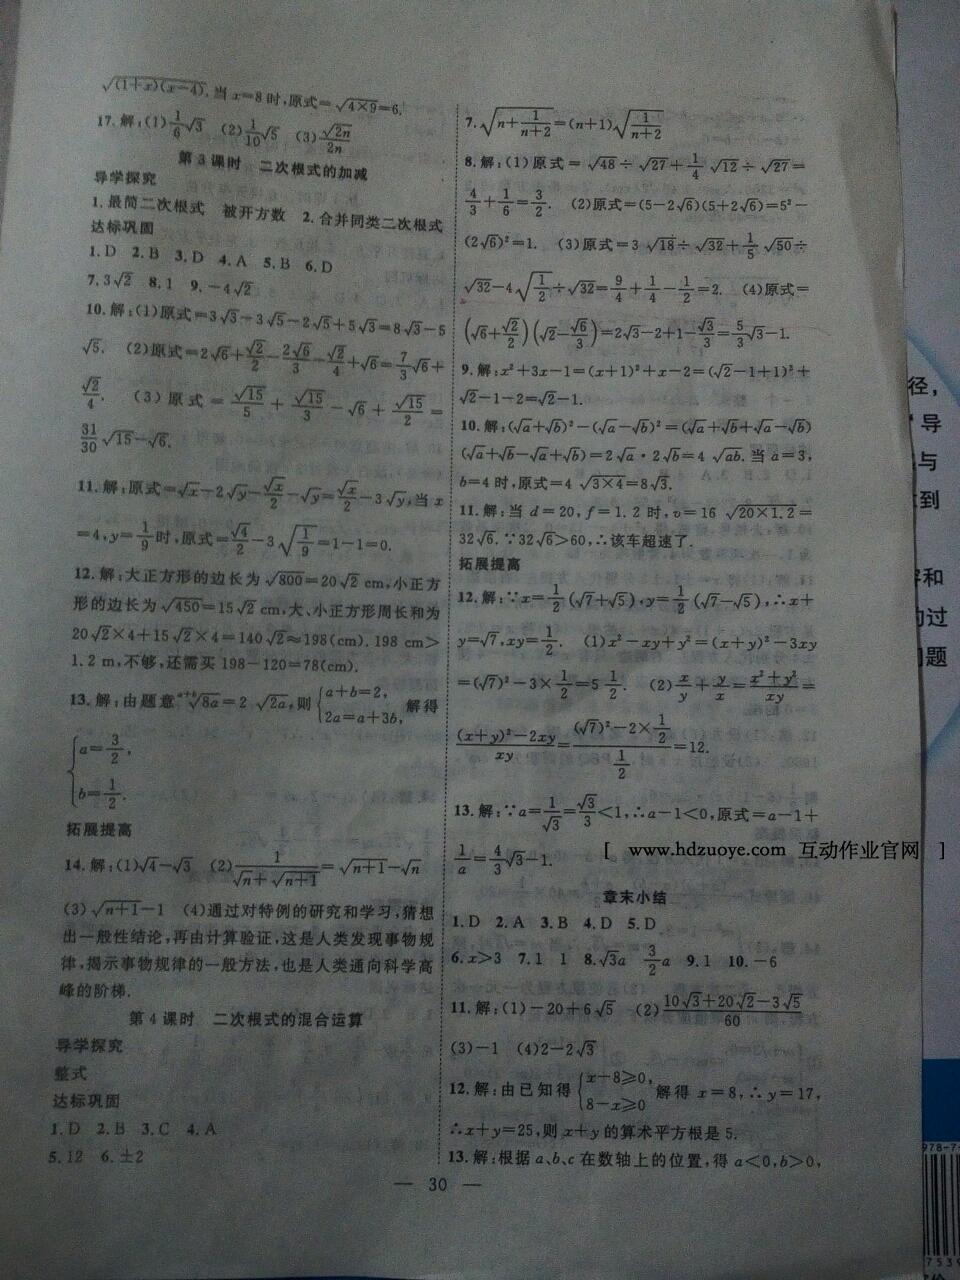 √(1+x)(x−4). 当 x=8 时,原式=√4×9=6.
17.解:(1)1/6√3 (2)1/10√5 (3)√2n/2n
第 3 课时 二次根式的加减
导学探究
1.最简二次根式 被开方数 2.合并同类二次根式
达标巩固
1.D 2.B 3.D 4.A 5.B 6.D
7.3√2 8.1 9.−4√2
10.解:(1)原式=3√3−3√5−2√5+5√3=8√3−5
√5. (2)原式=2√6+√2/2−2√6/3−√2/4+√6=7/3√6+
√2/4. (3)原式=√15/5+√15/3−√6+√15/2=
31/30√15−√6.
11.解:原式=√x−2√y−√x/2−√y=√x/2−3√y,当 x
=4,y=1/9时,原式=√4/2−3√1/9=1−1=0.
12.解:大正方形的边长为√800=20√2 cm,小正方
形的边长为√450=15√2 cm,大、小正方形周长和为
20√2×4+15√2×4=140√2≈198(cm). 198 cm>
1.2 m,不够,还需买 198−120=78(cm).
13.解:由题意 a+b√8a=2 √2a,则{a+b=2, 2a=a+3b, 解得
{a=3/2,
b=1/2.
拓展提高
14.解:(1)√4−√3 (2)1/√n+√n+1=√n+1−√n
(3)√n+1−1 (4)通过对特例的研究和学习,猜想
出一般性结论,再由计算验证,这是人类发现事物规
律,揭示事物规律的一般方法,也是人类通向科学高
峰的阶梯.
第 4 课时 二次根式的混合运算
导学探究
整式
达标巩固
1.D 2.B 3.C 4.A
5.12 6.±2
7.√n+1/n+2=(n+1)√1/n+2
8.解:(1)原式=√48÷√27+1/4√12÷√27=
4/3+1/6=3/2. (2)原式=(5−2√6)(5+2√6)=5²−
(2√6)²=1. (3)原式=3√18÷√32+1/5√50÷
√32−4√1/2÷√32=9/4+1/4−1/2=2. (4)原式=
(√6+√2/2)(√2−√6/3)=2√3−2+1−√3/3=5/3√3−1.
9.解:x²+3x−1=(x+1)²+x−2=(√2−1+1)²+
√2−1−2=√2−1.
10.解:(√a+√b)²−(√a−√b)²=(√a+√b+√a−√b)
(√a+√b−√a+√b)=2√a·2√b=4 √ab. 当 a=3,
b=4 时,原式=4 √3×4=8√3.
11.解:当 d=20,f=1.2 时,v=16 √20×1.2=
32√6.∵32√6>60,∴该车超速了.
拓展提高
12.解:∵x=1/2(√7+√5),y=1/2(√7−√5),∴x+
y=√7,xy=1/2. (1)x²−xy+y²=(x+y)²−3xy
=(√7)²−3×1/2=5 1/2. (2)x/y+y/x=x²+y²/xy=
(x+y)²−2xy/xy=(√7)²−2×1/2/1/2=12.
13.解:∵a=1/√3=√3/3<1,∴a−1<0,原式=a−1+
1/a=4/3√3−1.
[ www.hdzuoye.com 互动作业官网 ]
章末小结
1.D 2.A 3.B 4.D 5.D
6.x>3 7.1 1 8.√3a 3/2a 9.1 10.−6
11.解:(1)−20+6√5 (2)10√3+20√2−3√5/60
(3)−1 (4)2−2√3
12.解:由已知得{x−8≥0, 8−x≥0 解得 x=8,∴y=17,
∴x+y=25,则 x+y 的算术平方根是 5.
13.解:根据 a、b、c 在数轴上的位置,得 a<0,b>0,
— 30 —
径,
导
与
到
和
过
问题
978-7-